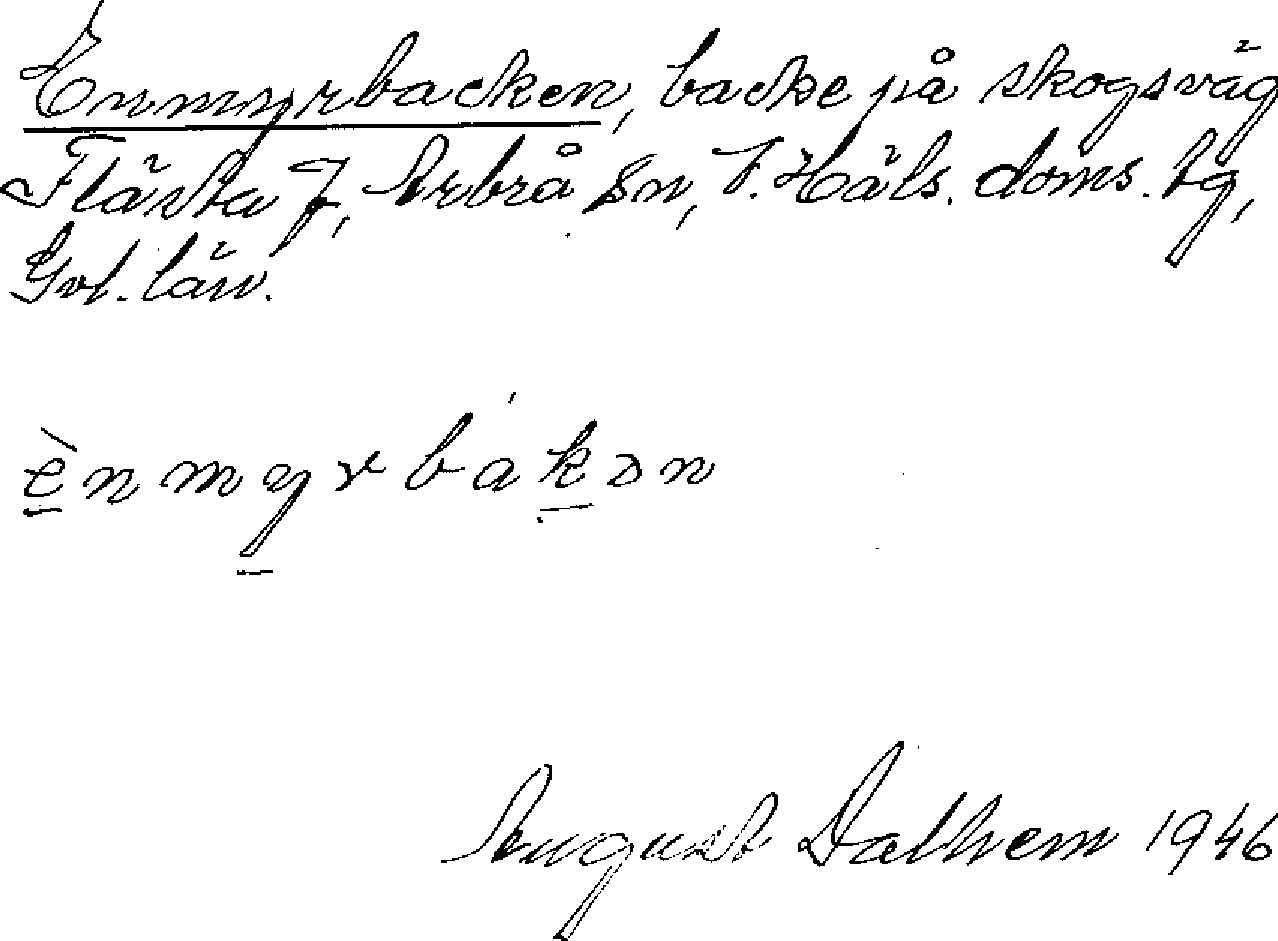 Enmyrbacken, backe på skogsväg
Flästa f, Arbrå sn, V. Häls. doms. tg,
Gvl. län.
ènmyrbákən
August Dalhem 1946